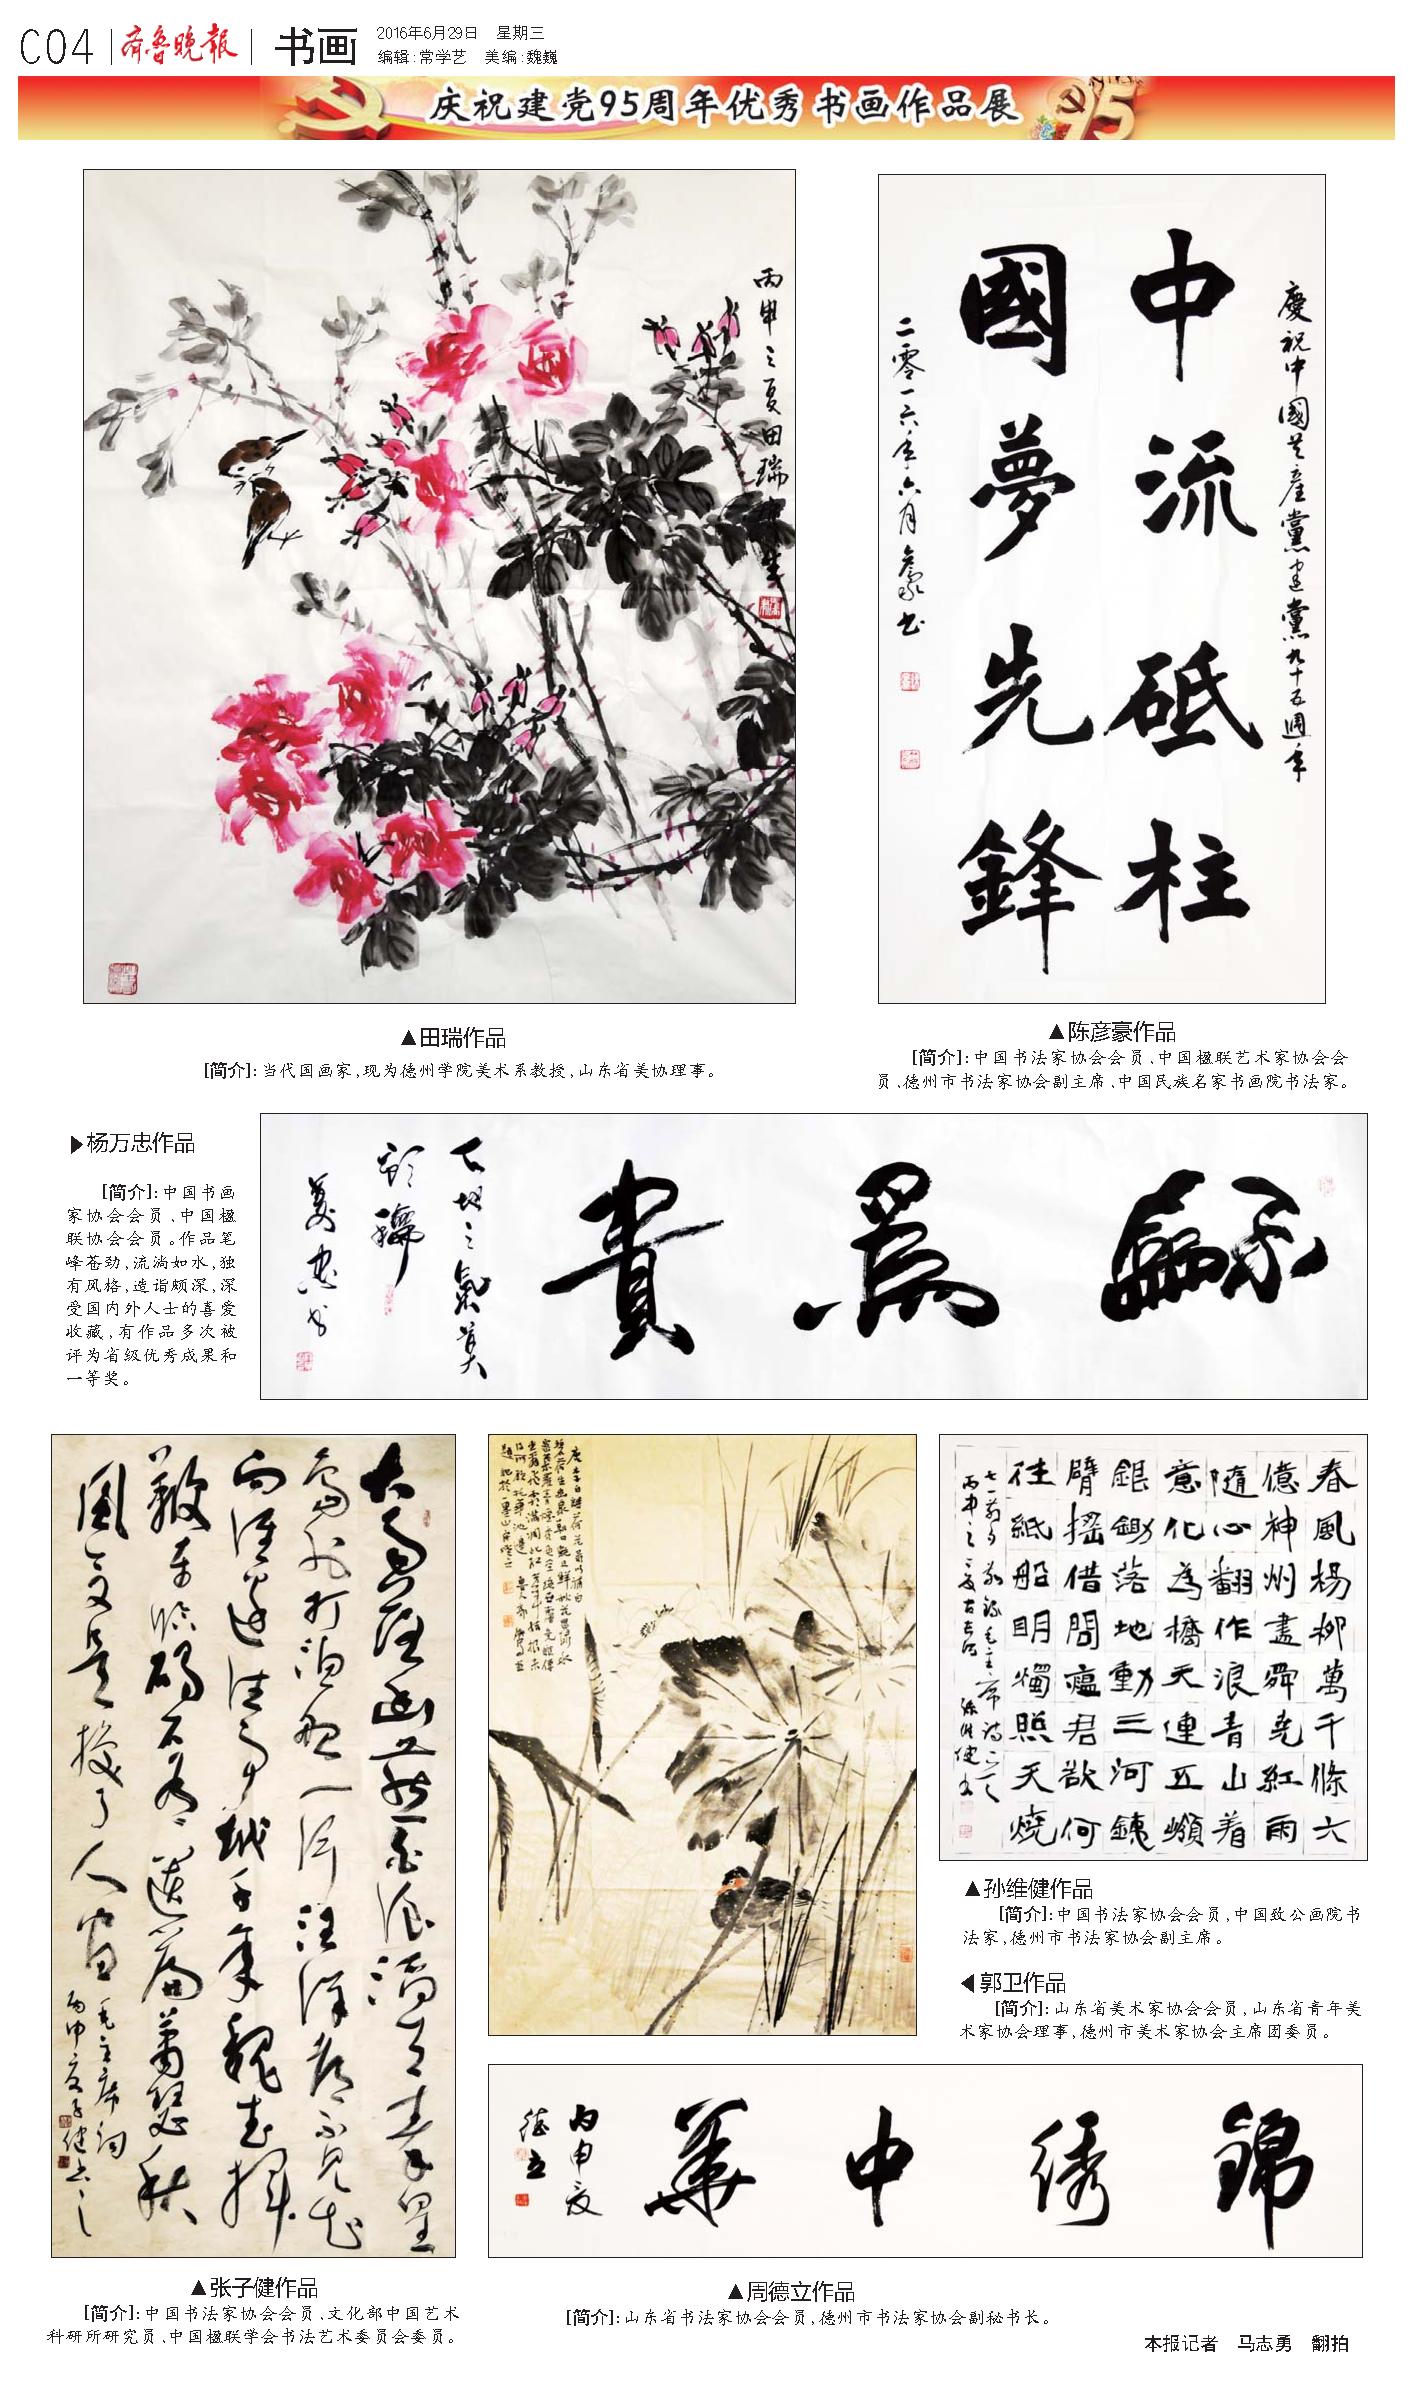 C04
齐鲁晚报
书画
2016年6月29日 星期三
编辑:常学艺 美编:魏巍
庆祝建党95周年优秀书画作品展
丙申之夏田瑞
慶祝中國共產黨建黨九十五週年
中流砥柱
國夢先鋒
二零一六年六月彥豪书
▲田瑞作品
[简介]:当代国画家,现为德州学院美术系教授,山东省美协理事。
▲陈彦豪作品
[简介]:中国书法家协会会员、中国楹联艺术家协会会
员、德州市书法家协会副主席、中国民族名家书画院书法家。
▶杨万忠作品
[简介]:中国书画
家协会会员、中国楹
联协会会员。作品笔
峰苍劲,流淌如水,独
有风格,造诣颇深,深
受国内外人士的喜爱
收藏,有作品多次被
评为省级优秀成果和
一等奖。
大雨落幽燕白浪滔天秦皇
島外打漁船一片汪洋都不見知
向誰邊往事越千年魏武揮
鞭東臨碣石有遺篇蕭瑟秋
風今又是換了人间
毛主席詞
丙申夏子健书
春風楊柳萬千條六
億神州盡舜堯紅雨
隨心翻作浪青山着
意化為橋天連五嶺
銀鋤落地動三河鐵
臂搖借問瘟君欲何
往紙船明燭照天燒
▲孙维健作品
[简介]:中国书法家协会会员,中国致公画院书
法家,德州市书法家协会副主席。
◀郭卫作品
[简介]:山东省美术家协会会员,山东省青年美
术家协会理事,德州市美术家协会主席团委员。
錦绣中華
丙申夏
德立
▲张子健作品
[简介]:中国书法家协会会员、文化部中国艺术
科研所研究员、中国楹联学会书法艺术委员会委员。
▲周德立作品
[简介]:山东省书法家协会会员,德州市书法家协会副秘书长。
本报记者 马志勇 翻拍